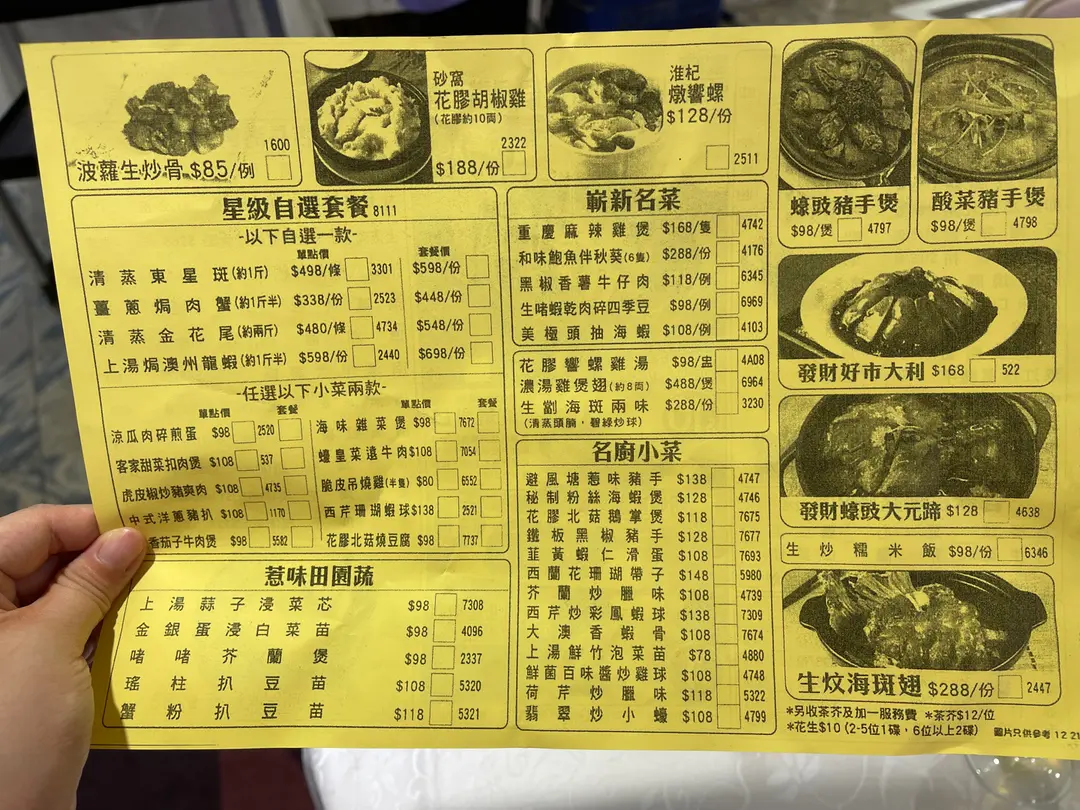 1600
波蘿生炒骨 $85/例
砂窩
花膠胡椒雞
(花膠約10両)
2322
$188/份
淮杞
燉響螺
$128/份
2511
蠔豉豬手煲
$98/煲 4797
酸菜豬手煲
$98/煲 4798
星級自選套餐 8111
-以下自選一款-
單點價 套餐價
清蒸東星斑(約1斤) $498/條 3301 $598/份
薑蔥焗肉蟹(約1斤半) $338/份 2523 $448/份
清蒸金花尾(約兩斤) $480/條 4734 $548/份
上湯焗澳州龍蝦(約1斤半) $598/份 2440 $698/份
-任選以下小菜両款-
單點價 套餐 單點價 套餐
涼瓜肉碎煎蛋 $98 2520
海味雜菜煲 $98 7672
客家甜菜扣肉煲 $108 537
蠔皇菜遠牛肉 $108 7054
虎皮椒炒豬爽肉 $108 4735
脆皮吊燒雞(半隻) $80 6552
中式洋蔥豬扒 $108 1170
西芹珊瑚蝦球 $138 2521
香茄子牛肉煲 $98 5582
花膠北菇燒豆腐 $98 7737
惹味田園蔬
上湯蒜子浸菜芯 $98 7308
金銀蛋浸白菜苗 $98 4096
啫啫芥蘭煲 $98 2337
瑤柱扒豆苗 $108 5320
蟹粉扒豆苗 $118 5321
嶄新名菜
重慶麻辣雞煲 $168/隻 4742
和味鮑魚伴秋葵(6隻) $288/份 4176
黑椒香薯牛仔肉 $118/例 6345
生啫蝦乾肉碎四季豆 $98/例 6969
美極頭抽海蝦 $108/例 4103
花膠響螺雞湯 $98/盅 4A08
濃湯雞煲翅(約8両) $488/煲 6964
生劏海斑兩味 $288/份 3230
(清蒸頭腩，碧綠炒球)
名廚小菜
避風塘惹味豬手 $138 4747
秘制粉絲海蝦煲 $128 4746
花膠北菇鵝掌煲 $118 7675
鐵板黑椒豬手 $128 7677
韮黃蝦仁滑蛋 $108 7693
西蘭花珊瑚帶子 $148 5980
芥蘭炒臘味 $108 4739
西芹炒彩鳳蝦球 $138 7309
大澳香蝦骨 $108 7674
上湯鮮竹泡菜苗 $78 4880
鮮菌百味醬炒雞球 $108 4748
荷芹炒臘味 $118 5322
翡翠炒小蠔 $108 4799
發財好市大利 $168 522
發財蠔豉大元蹄 $128 4638
生炒糯米飯 $98/份 6346
生炆海斑翅 $288/份 2447
*另收茶芥及加一服務費 *茶芥$12/位
*花生$10 (2-5位1碟，6位以上2碟)
圖片只供參考 12 21